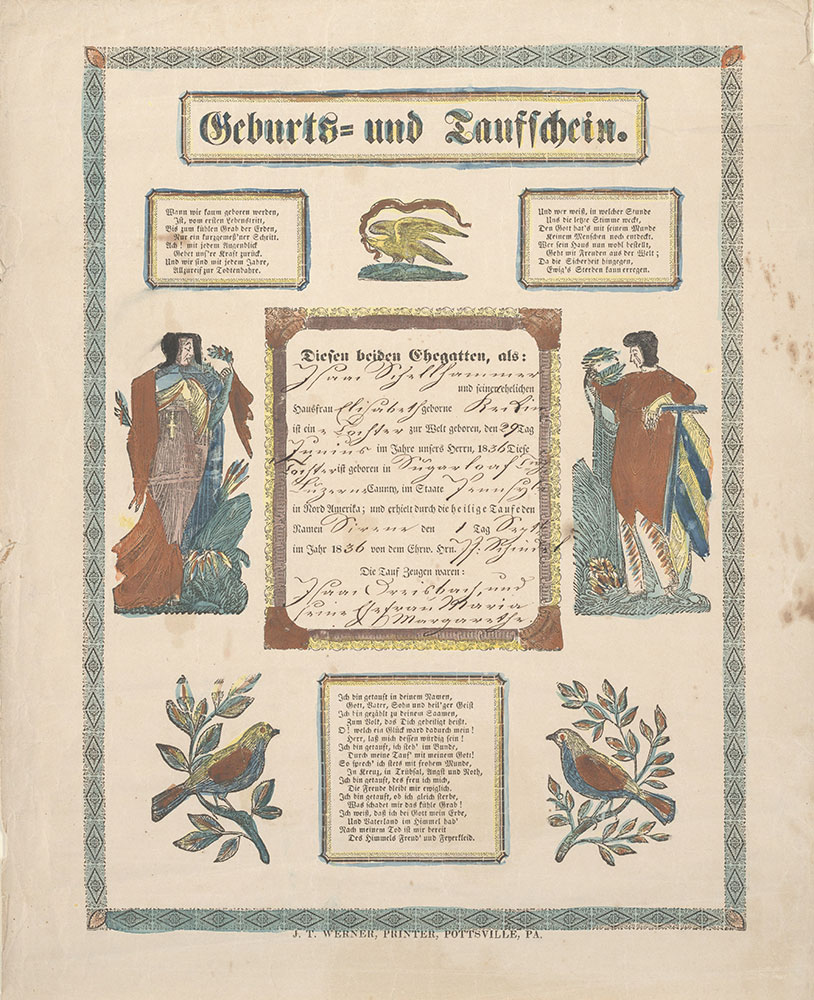 Geburts= und Taufschein.
Wann wir kaum geboren werden,
Ist, vom ersten Lebenstritt,
Bis zum kühlen Grab der Erden,
Nur ein kurzgemeß'ner Schritt.
Ach! mit jedem Augenblick
Gehet uns're Kraft zurück.
Und wir sind mit jedem Jahre,
Allzureif zur Todtenbahre.
Und wer weiß, in welcher Stunde
Uns die letzte Stimme weckt,
Den Gott hat's mit seinem Munde
Keinem Menschen noch entdeckt.
Wer sein Haus nun wohl bestellt,
Geht mit Freuden aus der Welt;
Da die Sicherheit hingegen,
Ewig's Sterben kann erregen.
Diesen beiden Ehegatten, als:
Isaac Schellhammer
und seiner ehelichen
Hausfrau Elisabeth geborne
ist eine Tochter zur Welt geboren, den 29 Tag
Junius im Jahre unsers Herrn, 1836 Diese
Tochter ist geboren in Sugarloaf
Luzerne Caunty, im Staate Pennsyl
in Nord Amerika; und erhielt durch die heilige Taufe den
Namen Sirene den 1 Tag Sept
im Jahr 1836 von dem Ehrw. Hrn.
Die Tauf Zeugen waren:
Isaac Dreisbach, und
seine Ehefrau Maria
Margarethe.
Ich bin getauft in deinem Namen,
Gott, Vater, Sohn und heil'ger Geist
Ich bin gezählt zu deinem Saamen,
Zum Volk, das Dich geheiligt heißt.
O! welch ein Glück ward dadurch mein!
Herr, laß mich dessen würdig sein!
Ich bin getauft, ich steh' im Bunde,
Durch meine Tauf' mit meinem Gott!
So sprech' ich stets mit frohem Munde,
In Kreuz, in Trübsal, Angst und Noth,
Ich bin getauft, des freu ich mich,
Die Freude bleibt mir ewiglich.
Ich bin getauft, ob ich gleich sterbe,
Was schadet mir das kühle Grab!
Ich weiß, daß ich bei Gott mein Erbe,
Und Vaterland im Himmel hab'
Nach meinem Tod ist mir bereit
Des Himmels Freud' und Feyerkleid.
J. T. WERNER, PRINTER, POTTSVILLE, PA.